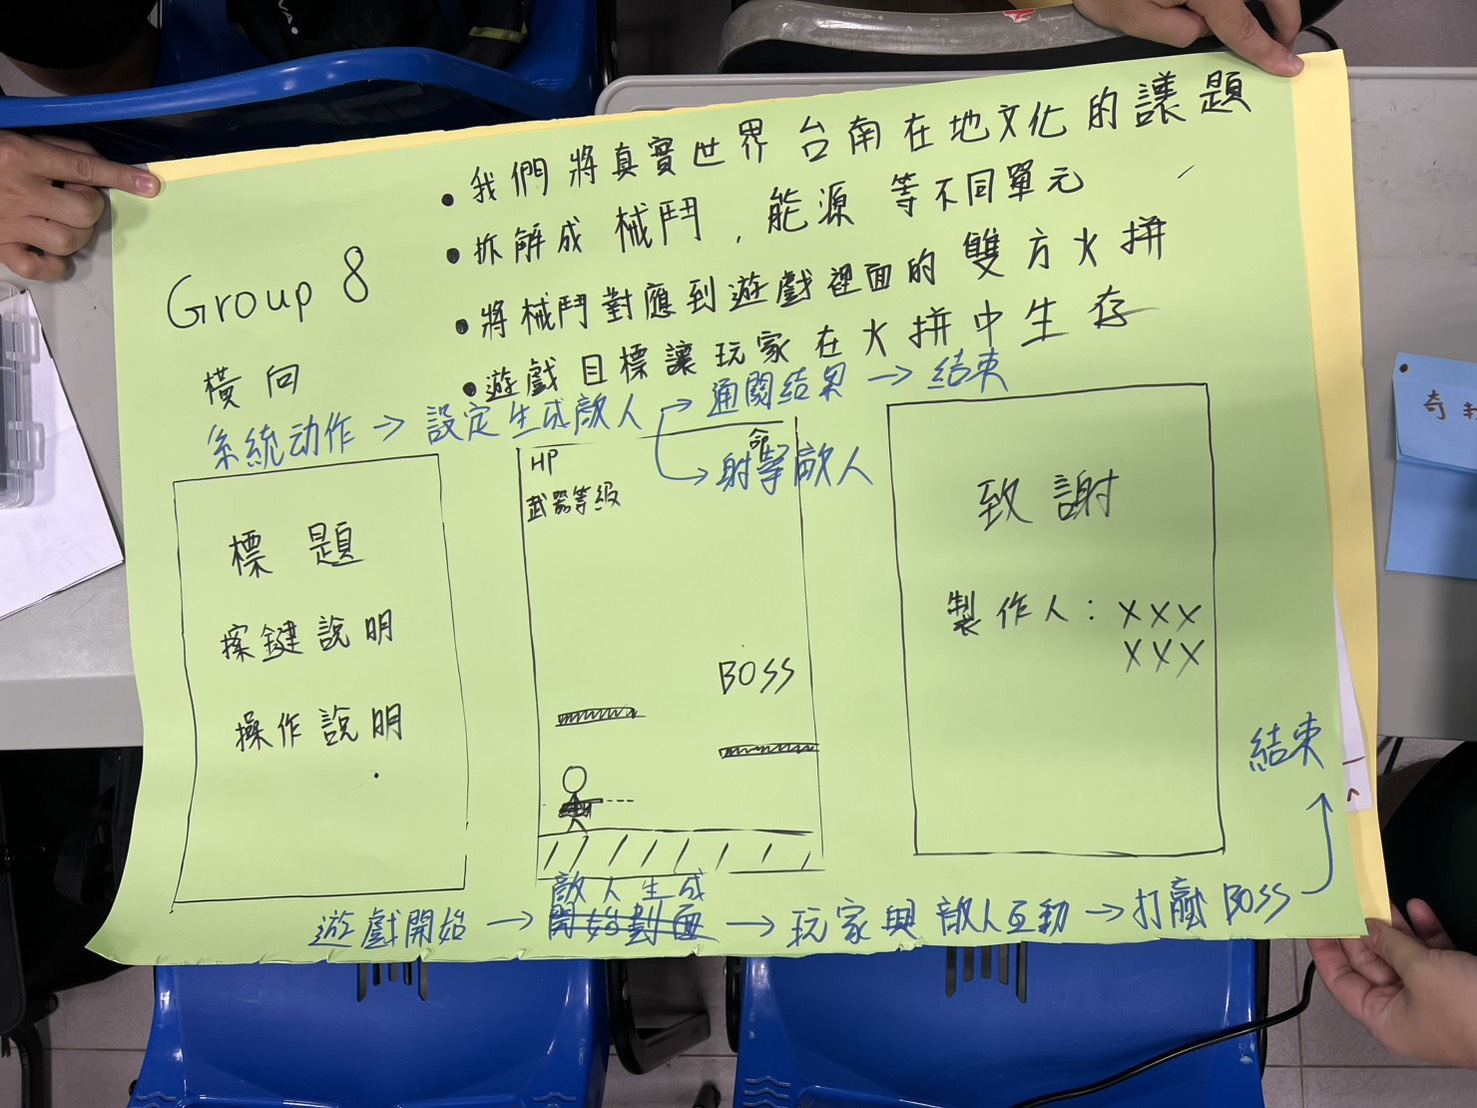 • 我們將真實世界台南在地文化的議題
• 拆解成械鬥，能源等不同單元
• 將械鬥對應到遊戲裡面的雙方火拼
• 遊戲目標讓玩家在火拼中生存
Group 8
橫向
系統动作 → 設定生成敵人 → 通關結果 → 結束
→ 射擊敵人
標題
按鍵說明
操作說明
HP
命
武器等級
BOSS
致謝
製作人：XXX
XXX
敵人生成
遊戲開始 → 開始劃面 → 玩家與敵人互動 → 打贏BOSS
結束
奇